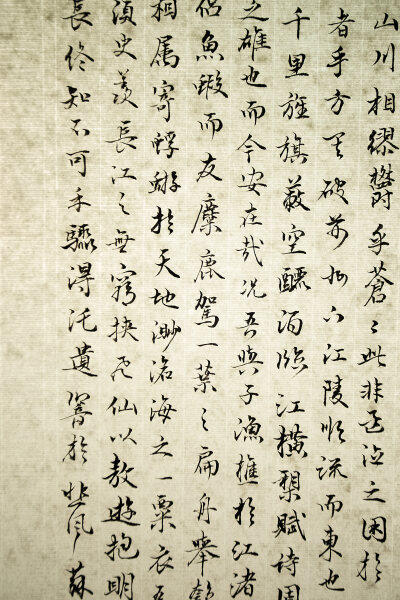 山川相繆鬱乎蒼〻此非孟德之困於
者乎方其破荊州下江陵順流而東也
千里旌旗蔽空釃酒臨江橫槊賦詩固
之雄也而今安在哉況吾與子漁樵於江渚
侶魚蝦而友麋鹿駕一葉之扁舟舉匏
相屬寄蜉蝣於天地渺滄海之一粟哀吾
須臾羨長江之無窮挾飛仙以遨遊抱明
長終知不可乎驟得託遺響於悲風蘇